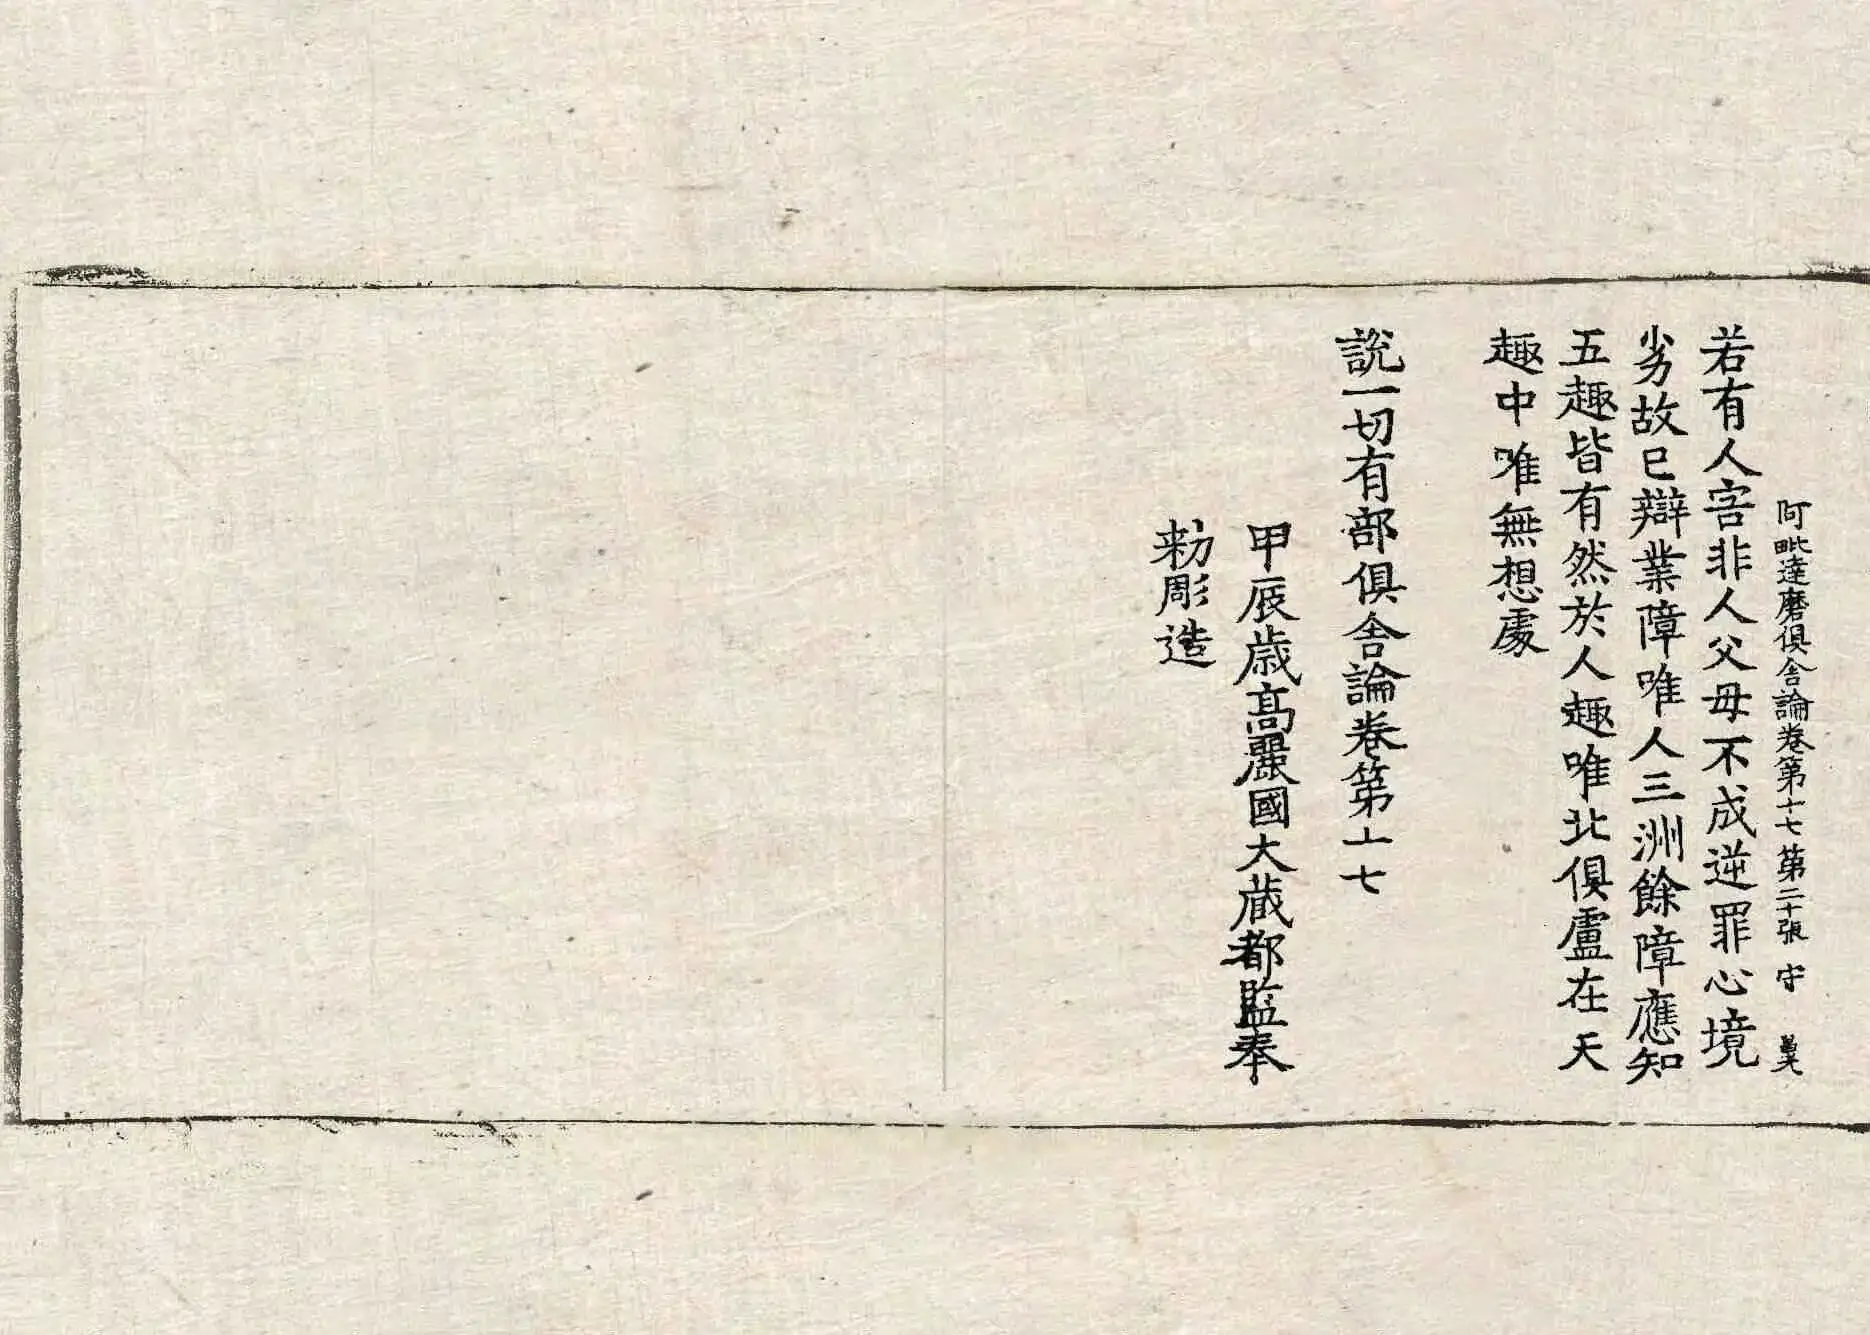 阿毗達磨俱舍論卷第十七 第二十張 守
若有人害非人父母不成逆罪心境
劣故已辯業障唯人三洲餘障應知
五趣皆有然於人趣唯北俱盧在天
趣中唯無想處
說一切有部俱舍論卷第十七
甲辰歲高麗國大藏都監奉
勑彫造